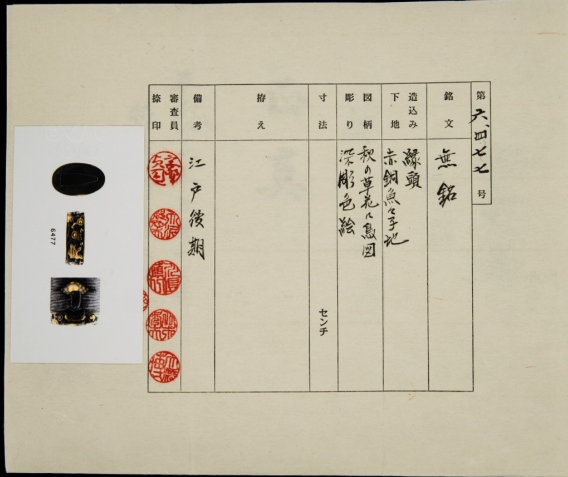 第六、四七七号
銘文 無銘
造込み 縁頭
下地 赤銅魚々子地
図柄 秋の草花に鳥図
彫り 深彫色絵
寸法 センチ
拵え
備考 江戸後期
審査員
捺印
6477